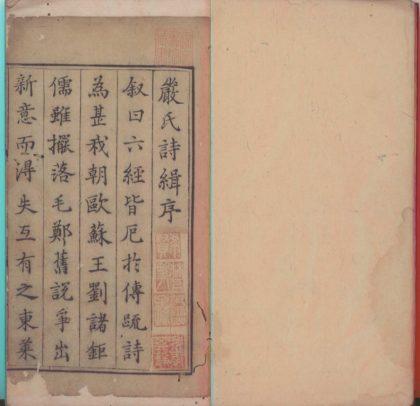 嚴氏詩緝序
叙曰六經皆厄扵傳䟽詩
為甚我朝歐蘇王劉諸鉅
儒雖擺落毛鄭舊說爭出
新意而得失互有之東萊